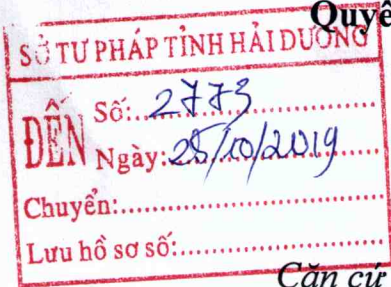 Quyế
SỞ TƯ PHÁP TỈNH HẢI DƯƠNG
ĐẾN
Số: 2773
Ngày: 25/10/2019
Chuyển:
Lưu hồ sơ số:
Căn cứ